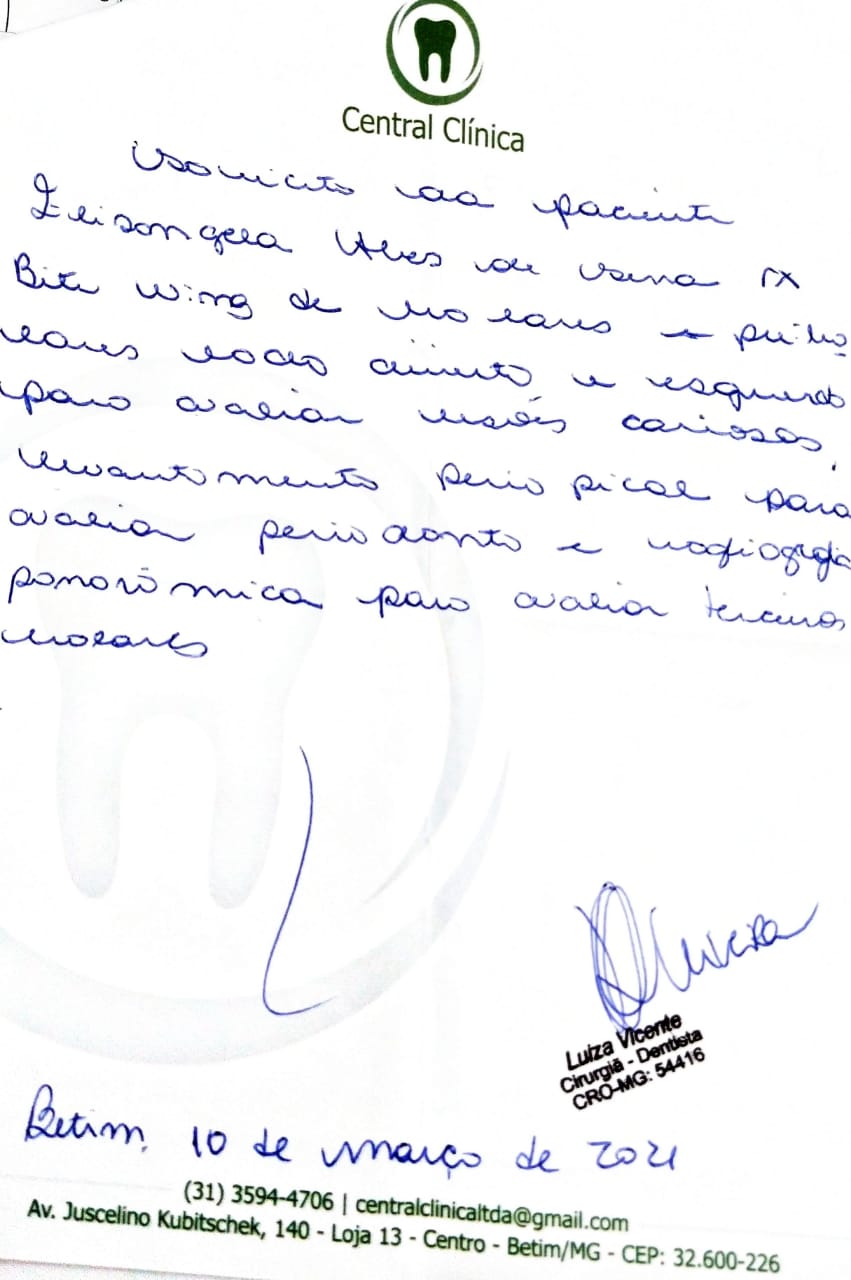 Central Clínica
Solicito da paciente
Elisangela Alves de Sena RX
Bite wing de molares e pré-mo
lares lado direito e esquerdo
para avaliar lesões cariosas,
levantamento periapical para
avaliar periodonto e radiografia
panorâmica para avaliar terceiros
molares
Luiza Vicente
Cirurgiã - Dentista
CRO-MG: 54416
Betim, 10 de março de 2021
(31) 3594-4706 | centralclinicaltda@gmail.com
Av. Juscelino Kubitschek, 140 - Loja 13 - Centro - Betim/MG - CEP: 32.600-226